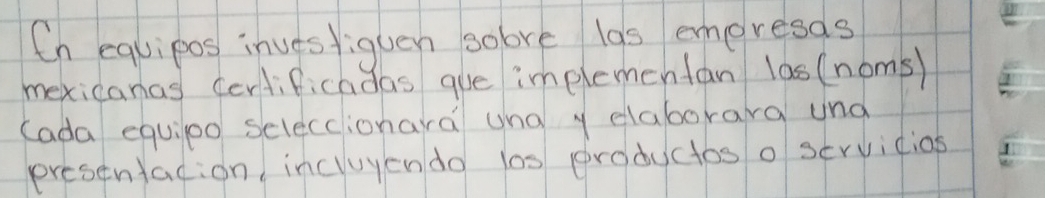 En equipos investiguen sobre las empresas
mexicanas certificadas que implementan las (noms)
Cada equipo seleccionará una y elaborara una
presentacion, incluyendo los productos o servicios